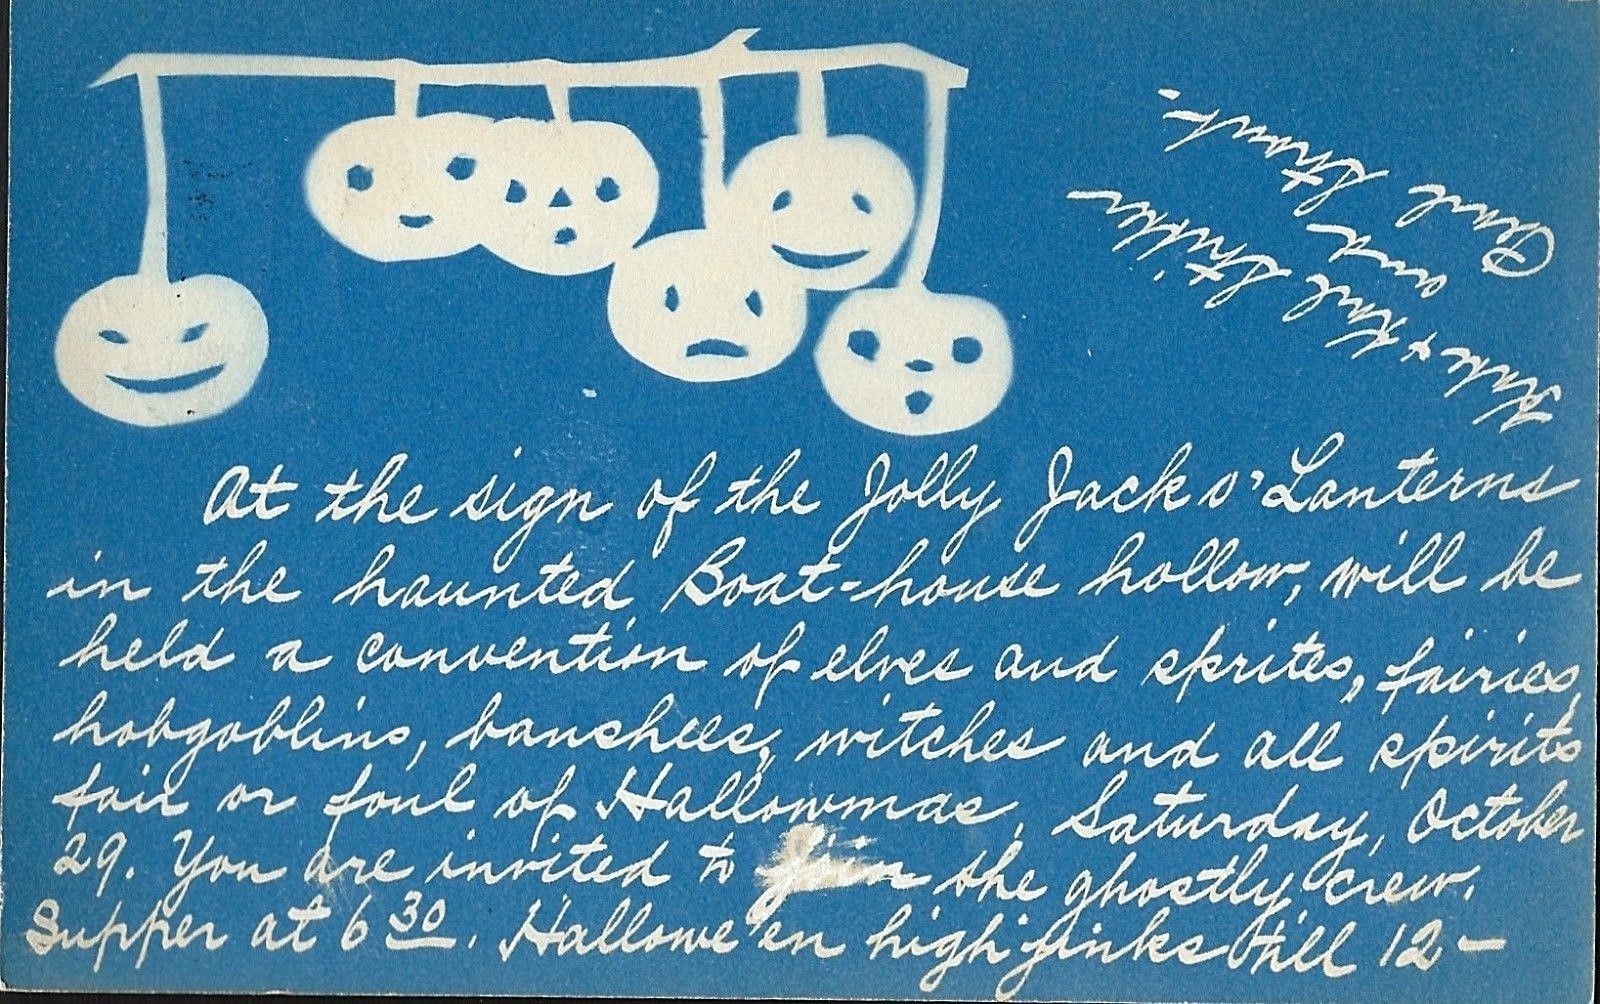 At the sign of the Jolly Jack o' Lanterns
in the haunted Boat-house hollow, will be
held a convention of elves and sprites, fairies,
hobgoblins, banshees, witches and all spirits
fair or foul of Hallowmas, Saturday, October
29. You are invited to join the ghostly crew.
Supper at 6 30. Hallowe'en high jinks till 12 —
Kate & Karl Striker
and
Strout.